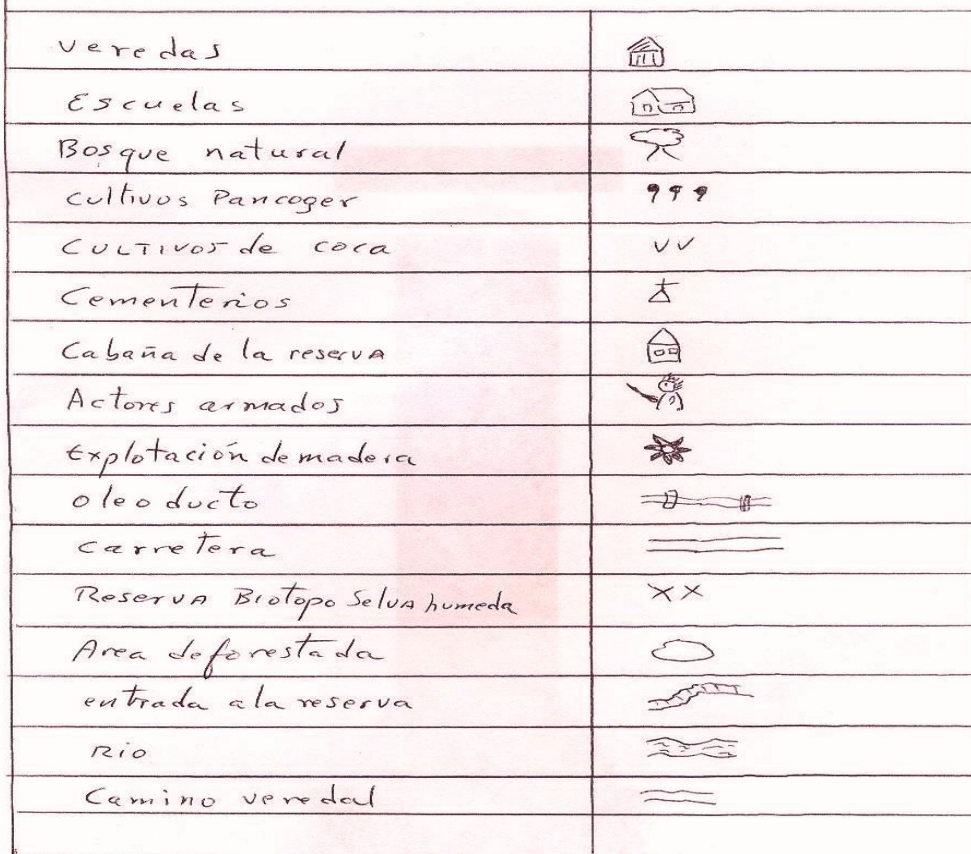 veredas
Escuelas
Bosque natural
Cultivos Pancoger
CULTIVOS de coca
Cementerios
Cabaña de la reservA
Actores armados
Explotación de madera
oleo ducto
carretera
ReservA Biotopo SelvA humeda
Area deforestada
entrada a la reserva
Rio
Camino veredal